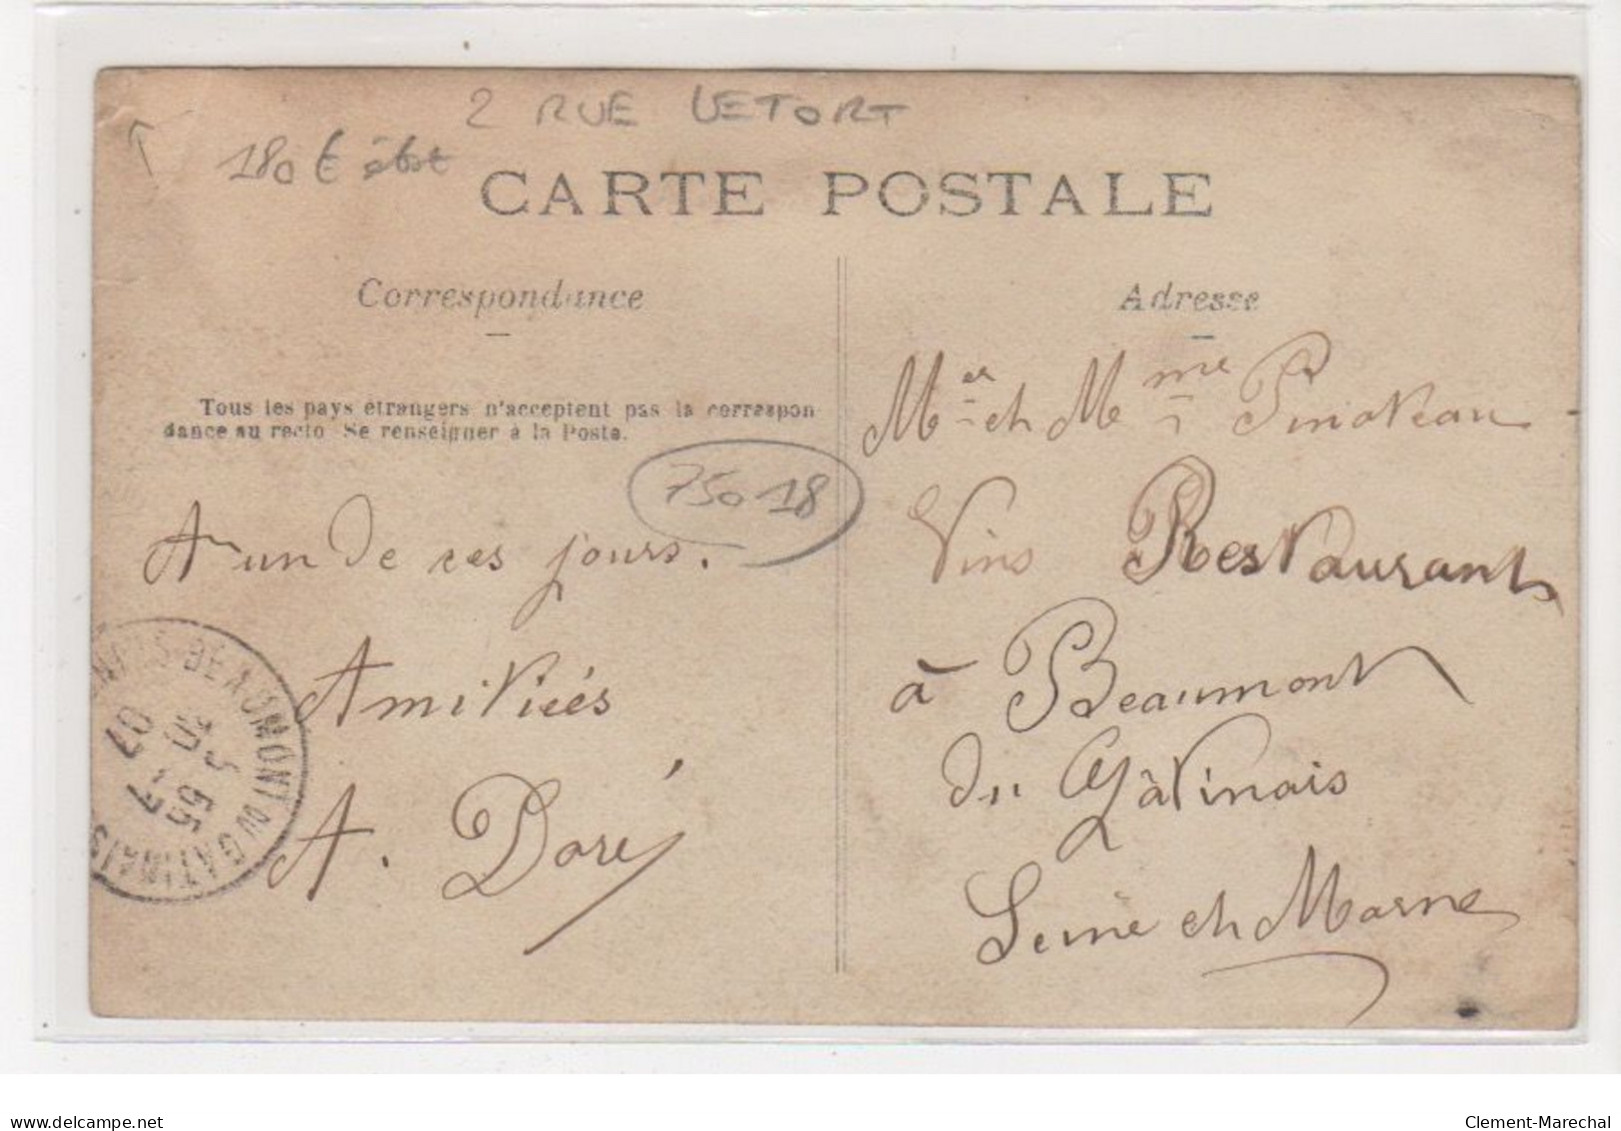 2 RUE LETORT
180 €
CARTE POSTALE
Correspondance
Tous les pays étrangers n'acceptent pas la correspon
dance au recto Se renseigner à la Poste.
75018
A un de ces jours.
Amitiés
A. Doré
BEAUMONT DU GATINAIS
3 55
30 -7
07
Adresse
Mer et Mme Pinoteau
Vins Restaurant
à Beaumont
du Gâtinais
Seine et Marne
www.delcampe.net
Clement-Marechal